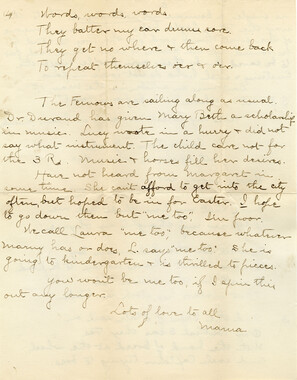 4
Words, words, words
They batter my ear drums sore
They get no where & then come back
To repeat themselves o'er & o'er.
The Temous are sailing along as usual.
Dr. Durand has given Mary Beth a scholarship
in music. Lucy wrote in a hurry & did not
say what instrument. The child care not for
the 3 R's. Music & horses fill her desires.
Have not heard from Margaret in
some time. She can't afford to get into the city
often, but hoped to be in for Easter. I hope
to go down then but "me too". I'm poor.
We call Laura "me too" because whatever
mamy has or does, L. say "me too". She is
going to kindergarten & is thrilled to pieces.
You won't be me too, if I spin this
out any longer.
Lots of love to all
Mama